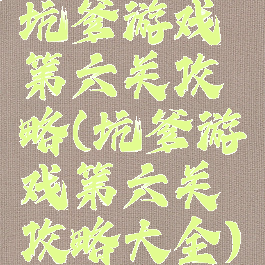 坑爹游戏
第六关攻
略(坑爹游
戏第六关
攻略大全)